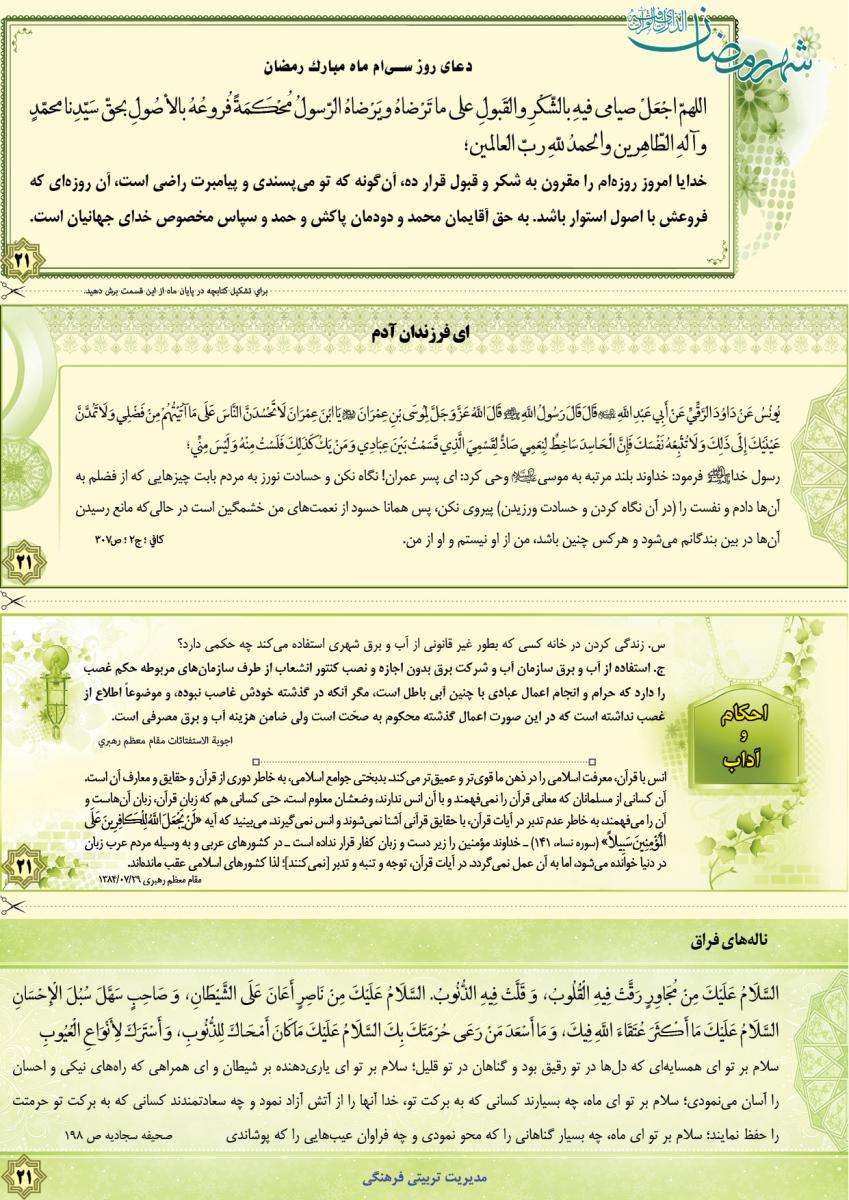 شهر رمضان
الذی انزل فیه القرآن
دعای روز سـی‌ام ماه مبارك رمضان
اللهمّ اجْعَلْ صیامی فیهِ بالشّكْرِ والقَبولِ علی ما تَرْضاهُ ویَرْضاهُ الرّسولُ مُحْكَمَةً فُروعُهُ بالأصُولِ بحَقّ سَیّدِنا محمّدٍ
وآلهِ الطّاهِرین والحمدُ للّهِ ربّ العالمین؛
خدایا امروز روزه‌ام را مقرون به شکر و قبول قرار ده، آن‌گونه که تو می‌پسندی و پیامبرت راضی است، آن روزه‌ای که
فروعش با اصول استوار باشد. به حق آقایمان محمد و دودمان پاکش و حمد و سپاس مخصوص خدای جهانیان است.
۲۱
براي تشكيل كتابچه در پايان ماه از اين قسمت برش دهيد.
ای فرزندان آدم
يُونُسُ عَنْ دَاوُدَ الرَّقِّيِّ عَنْ أَبِي عَبْدِ اللَّهِ قَالَ قَالَ رَسُولُ اللَّهِ قَالَ اللَّهُ عَزَّ وَ جَلَّ لِمُوسَى بْنِ عِمْرَانَ يَا ابْنَ عِمْرَانَ لَا تَحْسُدَنَّ النَّاسَ عَلَى مَا آتَيْتُهُمْ مِنْ فَضْلِي وَ لَا تَمُدَّنَّ
عَيْنَيْكَ إِلَى ذَلِكَ وَ لَا تُتْبِعْهُ نَفْسَكَ فَإِنَّ الْحَاسِدَ سَاخِطٌ لِنِعَمِي صَادٌّ لِقَسْمِيَ الَّذِي قَسَمْتُ بَيْنَ عِبَادِي وَ مَنْ يَكُ كَذَلِكَ فَلَسْتُ مِنْهُ وَ لَيْسَ مِنِّي؛
رسول خدا فرمود: خداوند بلند مرتبه به موسی وحی کرد: ای پسر عمران! نگاه نکن و حسادت نورز به مردم بابت چیزهایی که از فضلم به
آن‌ها دادم و نفست را (در آن نگاه کردن و حسادت ورزیدن) پیروی نکن، پس همانا حسود از نعمت‌های من خشمگین است در حالی‌که مانع رسیدن
آن‌ها در بین بندگانم می‌شود و هرکس چنین باشد، من از او نیستم و او از من.
کافي ؛ ج۲ ؛ ص۳۰۷
۲۱
احکام
و
آداب
س. زندگی کردن در خانه کسی که بطور غیر قانونی از آب و برق شهری استفاده می‌کند چه حکمی دارد؟
ج. استفاده از آب و برق سازمان آب و شرکت برق بدون اجازه و نصب کنتور انشعاب از طرف سازمان‌های مربوطه حکم غصب
را دارد که حرام و انجام اعمال عبادی با چنین آبی باطل است، مگر آنکه در گذشته خودش غاصب نبوده، و موضوعاً اطلاع از
غصب نداشته است که در این صورت اعمال گذشته محکوم به صحّت است ولی ضامن هزینه آب و برق مصرفی است.
اجوبة الاستفتائات مقام معظم رهبري
انس با قرآن، معرفت اسلامی را در ذهن ما قوی‌تر و عمیق‌تر می‌کند. بدبختی جوامع اسلامی، به خاطر دوری از قرآن و حقایق و معارف آن است.
آن کسانی از مسلمانان که معانی قرآن را نمی‌فهمند و با آن انس ندارند، وضعشان معلوم است. حتی کسانی هم که زبان قرآن، زبان آن‌هاست و
آن را می‌فهمند، به خاطر عدم تدبر در آیات قرآن، با حقایق قرآنی آشنا نمی‌شوند و انس نمی‌گیرند. می‌بینید که آیه «لَنْ يَجْعَلَ اللَّهُ لِلْكَافِرِينَ عَلَى
الْمُؤْمِنِينَ سَبِيلاً» (سوره نساء، ۱۴۱) ـ خداوند مؤمنین را زیر دست و زبان کفار قرار نداده است ـ در کشورهای عربی و به وسیله مردم عرب زبان
در دنیا خوانده می‌شود، اما به آن عمل نمی‌گردد. در آیات قرآن، توجه و تنبه و تدبر [نمی‌کنند]؛ لذا کشورهای اسلامی عقب مانده‌اند.
مقام معظم رهبری ۱۳۸۴/۰۷/۲۶
۲۱
ناله‌های فراق
السَّلَامُ عَلَيْكَ مِنْ مُجَاوِرٍ رَقَّتْ فِيهِ الْقُلُوبُ، وَ قَلَّتْ فِيهِ الذُّنُوبُ. السَّلَامُ عَلَيْكَ مِنْ نَاصِرٍ أَعَانَ عَلَى الشَّيْطَانِ، وَ صَاحِبٍ سَهَّلَ سُبُلَ الْإِحْسَانِ
السَّلَامُ عَلَيْكَ مَا أَكْثَرَ عُتَقَاءَ اللَّهِ فِيكَ، وَ مَا أَسْعَدَ مَنْ رَعَى حُرْمَتَكَ بِكَ السَّلَامُ عَلَيْكَ مَا كَانَ أَمْحَاكَ لِلذُّنُوبِ، وَ أَسْتَرَكَ لِأَنْوَاعِ الْعُيُوبِ
سلام بر تو ای همسایه‌ای که دل‌ها در تو رقیق بود و گناهان در تو قلیل؛ سلام بر تو ای یاری‌دهنده بر شیطان و ای همراهی که راه‌های نیکی و احسان
را آسان می‌نمودی؛ سلام بر تو ای ماه، چه بسیارند کسانی که به برکت تو، خدا آنها را از آتش آزاد نمود و چه سعادتمندند کسانی که به برکت تو حرمتت
را حفظ نمایند؛ سلام بر تو ای ماه، چه بسیار گناهانی را که محو نمودی و چه فراوان عیب‌هایی را که پوشاندی
صحیفه سجادیه ص ۱۹۸
۲۱
مدیریت تربیتی فرهنگی